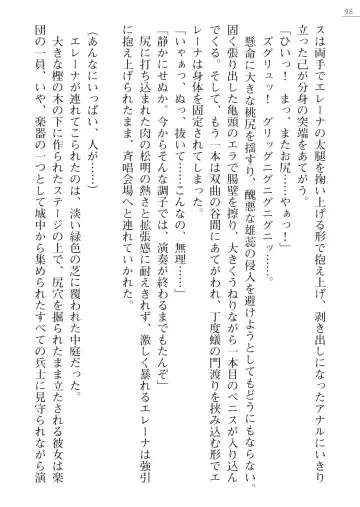 98
スは両手でエレーナの太腿を掬い上げる形で抱え上げ、剥き出しになったアナルにいきり
立った己が分身の突端をあてがう。
「ひいっ！　まっ、またお尻……やぁっ！」
ズグリュッ！　グリッグニグニグニッ……。
懸命に大きな桃尻を揺すり、醜悪な雄蕊の侵入を避けようとしてもどうにもならない。
固く張り出した亀頭のエラで腸壁を擦り、大きくうねりながら一本目のペニスが入り込ん
でくる。そして、もう一本は双曲の谷間にあてがわれ、丁度蟻の門渡りを挟み込む形でエ
レーナは身体を固定されてしまった。
「いやぁっ、ぬっ、抜いて……こんなの、無理……」
「静かにせぬか。今からそんな調子では、演奏が終わるまでもたんぞ」
尻に打ち込まれた肉の松明の熱さと拡張感に耐えきれず、激しく暴れるエレーナは強引
に抱え上げられたまま、斉唱会場へと連れていかれた。
（あんなにいっぱい、人が……）
エレーナが連れてこられたのは、淡い緑色の芝に覆われた中庭だった。
大きな樫の木の下に作られたステージの上で、尻穴を掘られたまま立たされる彼女は楽
団の一員、いや、楽器の一つとして城中から集められたすべての兵士に見守られながら演